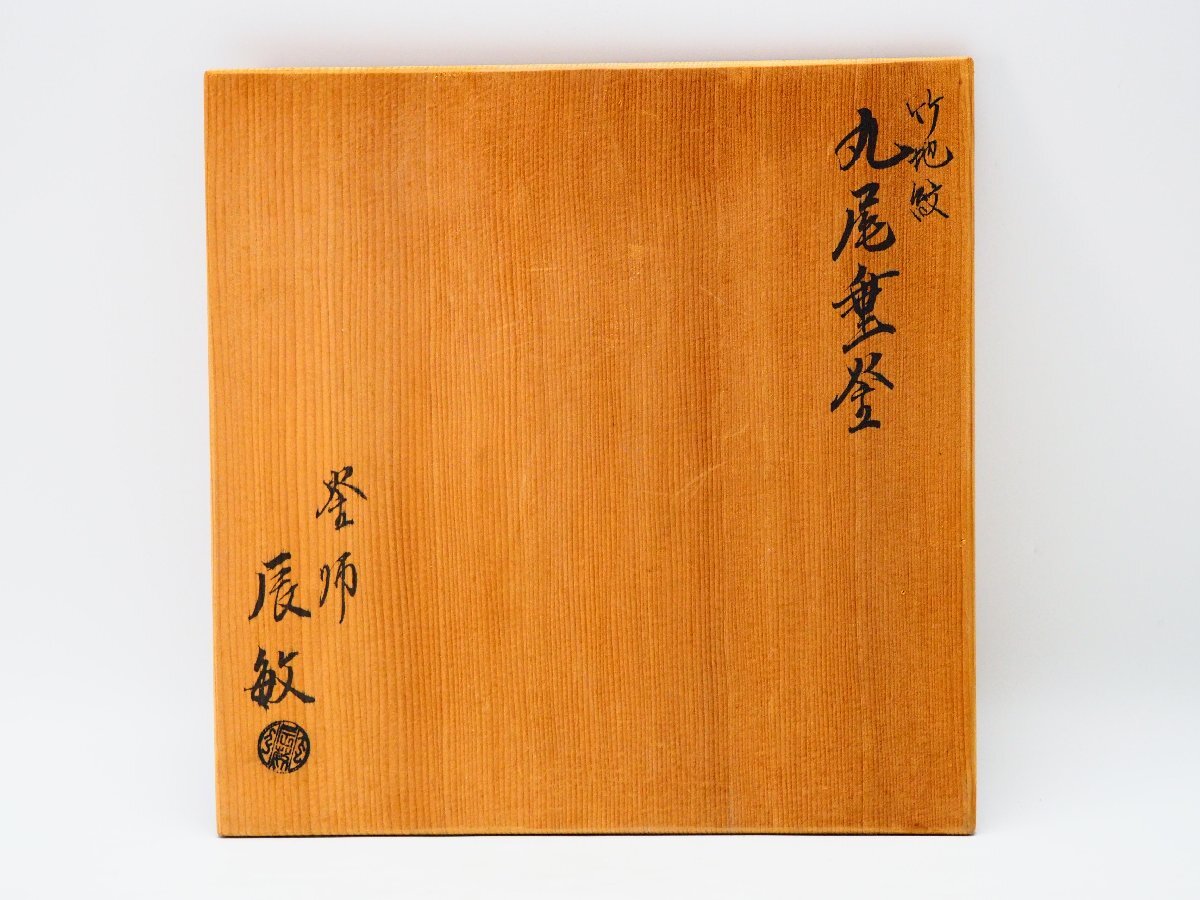 竹地紋
丸尾垂釜
釜師
辰敏